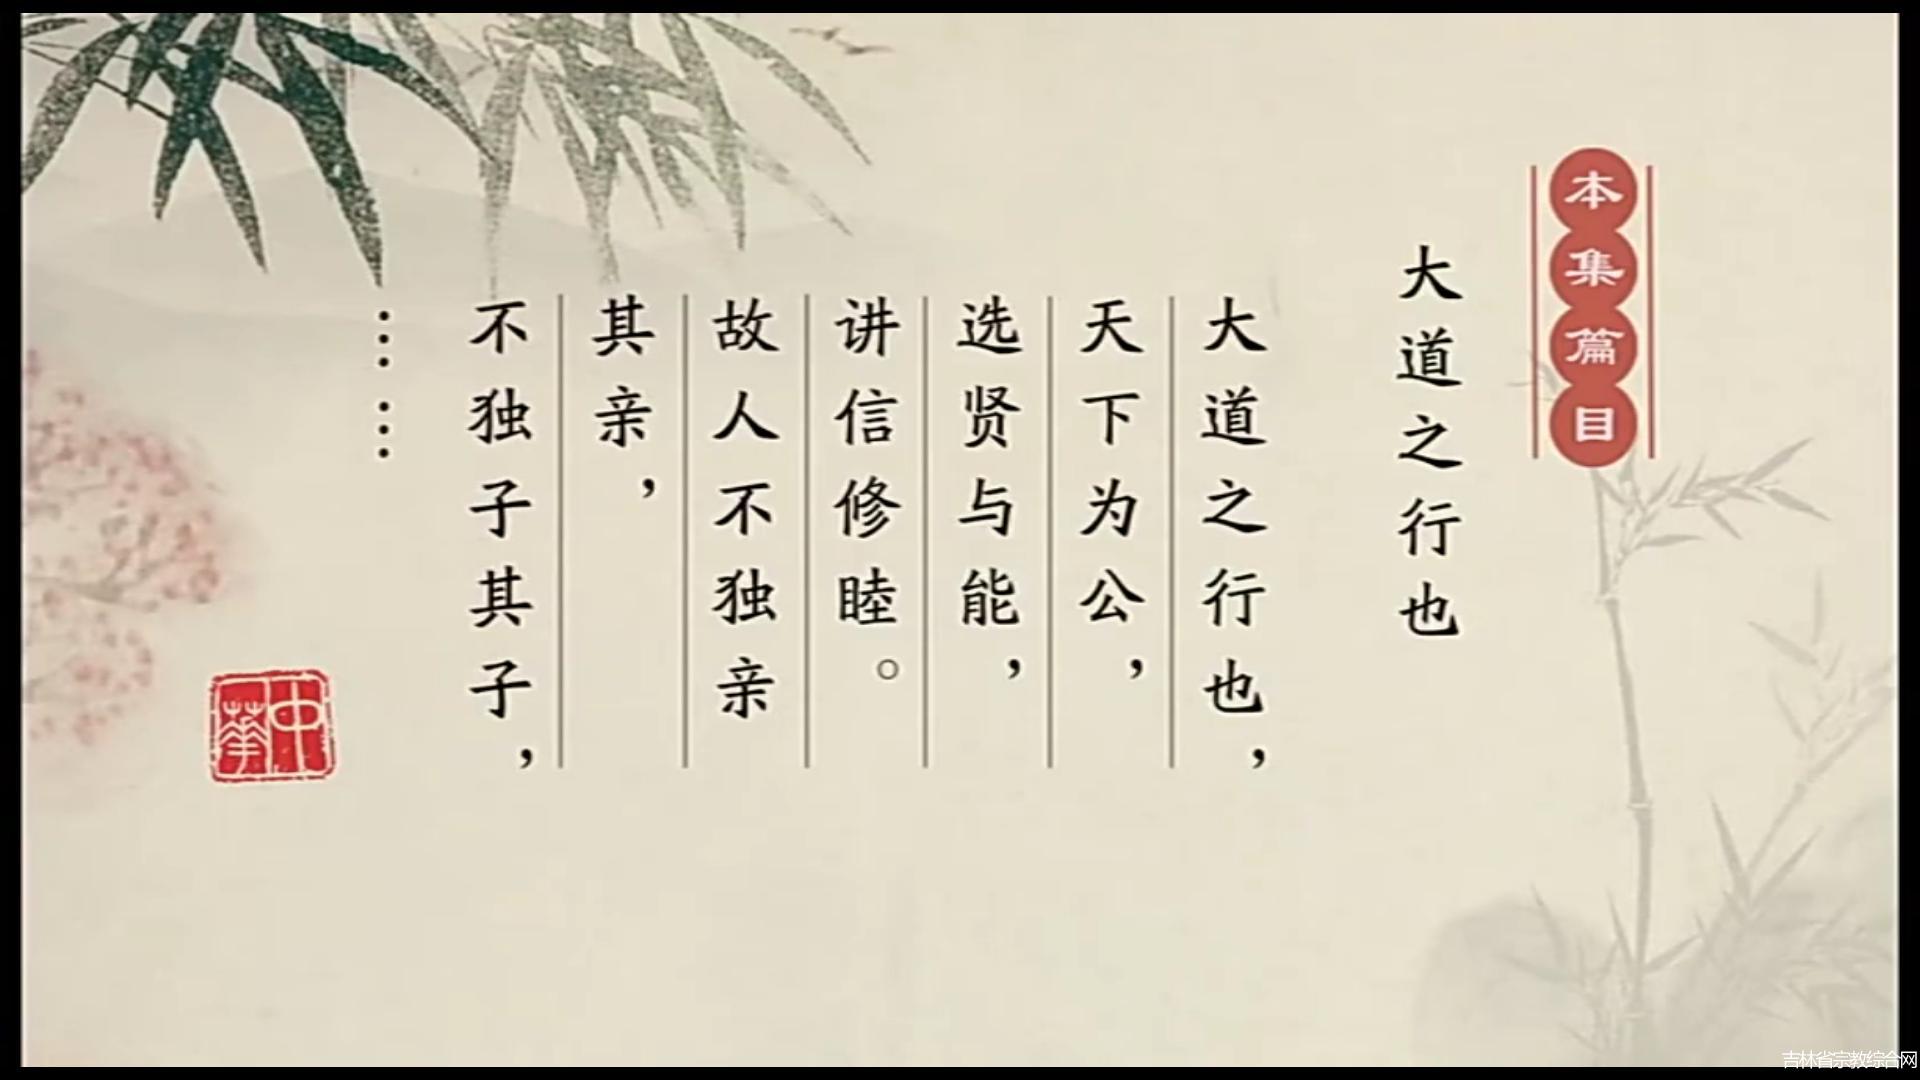 本集篇目
大道之行也
大道之行也，
天下为公，
选贤与能，
讲信修睦。
故人不独亲
其亲，
不独子其子，
……
中華
吉林省宗教综合网